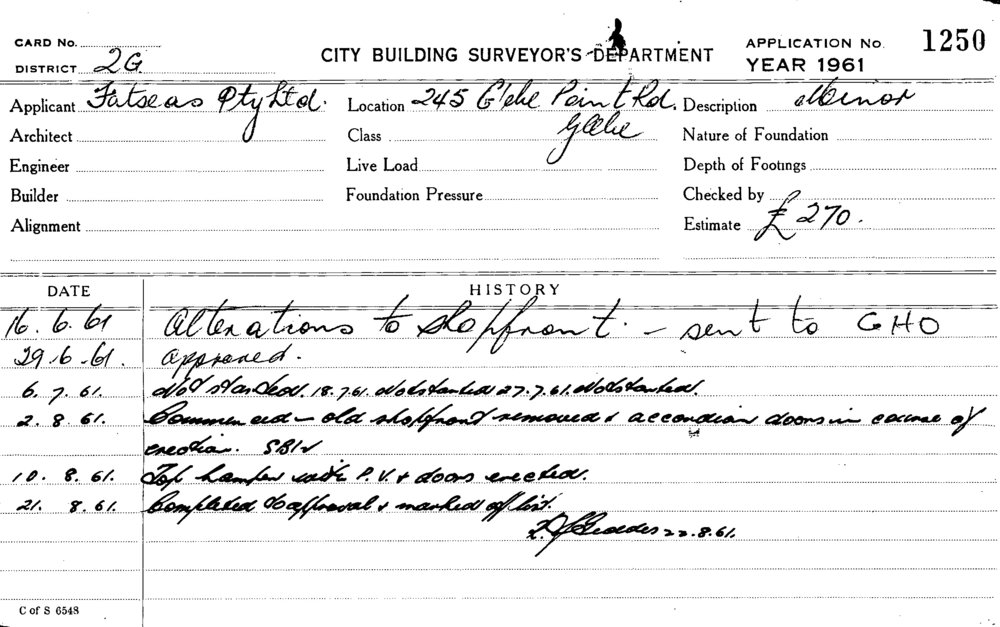 CARD No.
DISTRICT 2G
CITY BUILDING SURVEYOR'S DEPARTMENT
APPLICATION No. 1250
YEAR 1961
Applicant Fatseas Pty Ltd. Location 245 Glebe Point Rd. Description Minor
Architect Class Glebe Nature of Foundation
Engineer Live Load Depth of Footings
Builder Foundation Pressure Checked by
Alignment Estimate £ 270.
DATE HISTORY
16. 6. 61 Alterations to shopfront. - sent to GHO
29.6.61. approved.
6. 7. 61. Not started. 18.7.61. Not started 27.7.61. Not started.
2. 8. 61. Commenced - old shopfront removed & accordian doors in course of
erection.
10. 8. 61. Top hamper with P.V. & doors erected.
21. 8. 61. Completed to approval & marked off list.
Geddes 22.8.61.
C of S 6548